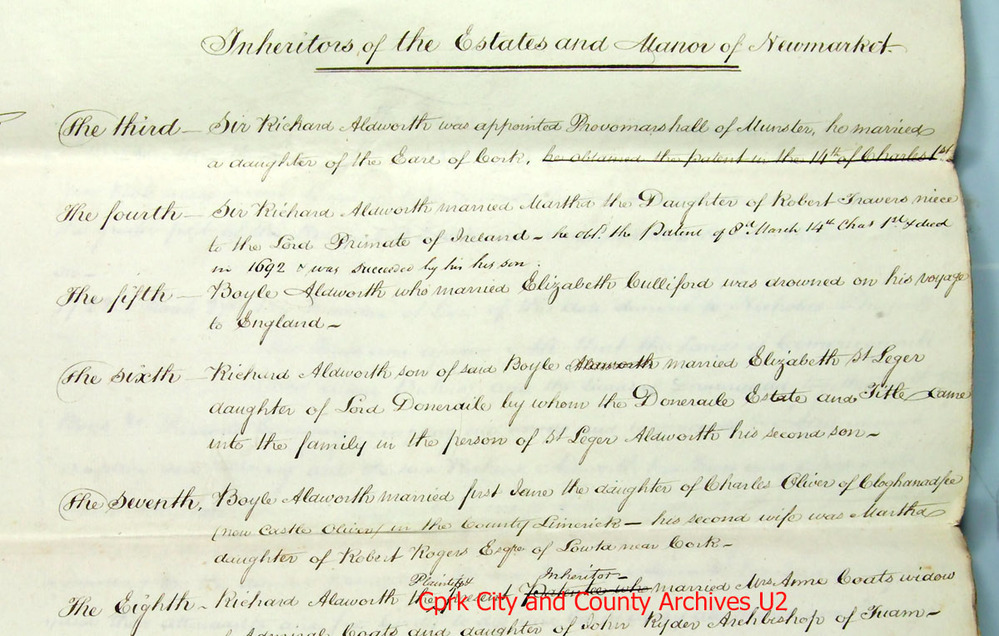 Inheritors of the Estates and Manor of Newmarket
The third – Sir Richard Aldworth was appointed Provomarshall of Munster, he married
a daughter of the Earl of Cork, he obtained the patent in the 14th of Charles 1st
The fourth – Sir Richard Aldworth married Martha the Daughter of Robert Travers niece
to the Lord Primate of Ireland – he obtd. the Patent of 8th March 14th Chas 1st & died
in 1692 & was succeeded by his his son.
The fifth – Boyle Aldworth who married Elizabeth Culliford was drowned on his voyage
to England –
The sixth – Richard Aldworth son of said Boyle Aldworth married Elizabeth St Leger
daughter of Lord Doneraile by whom the Doneraile Estate and Title came
into the family in the person of St Leger Aldworth his second son –
The Seventh, Boyle Aldworth married first Jane the daughter of Charles Oliver of
(now Castle Oliver) in the County Limerick – his second wife was Martha
daughter of Robert Rogers Esqre of Lowta near Cork –
Plaintiff Inheritor –
The Eighth – Richard Aldworth the present who married Mrs Anne Coats widow
of Admiral Coats and daughter of John Ryder Archbishop of Tuam –
Cprk City and County Archives U2